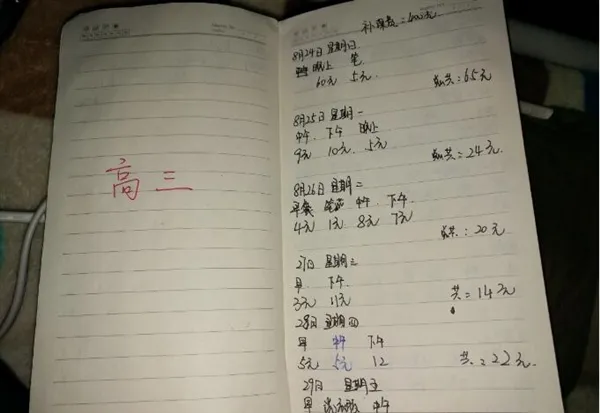 高三
补课费：600元
8月24日 星期日
晚上 笔
60元 5元
共：65元
8月25日 星期一
中午 下午 晚上
9元 10元 5元
共：24元
8月26日 星期二
早餐 笔芯 中午 下午
4元 1元 8元 7元
共：20元
27日 星期三
早 下午
3元 11元
共：14元
28日 星期四
早 中午 下午
5元 5元 12
共：22元
29日 星期五
早 中午